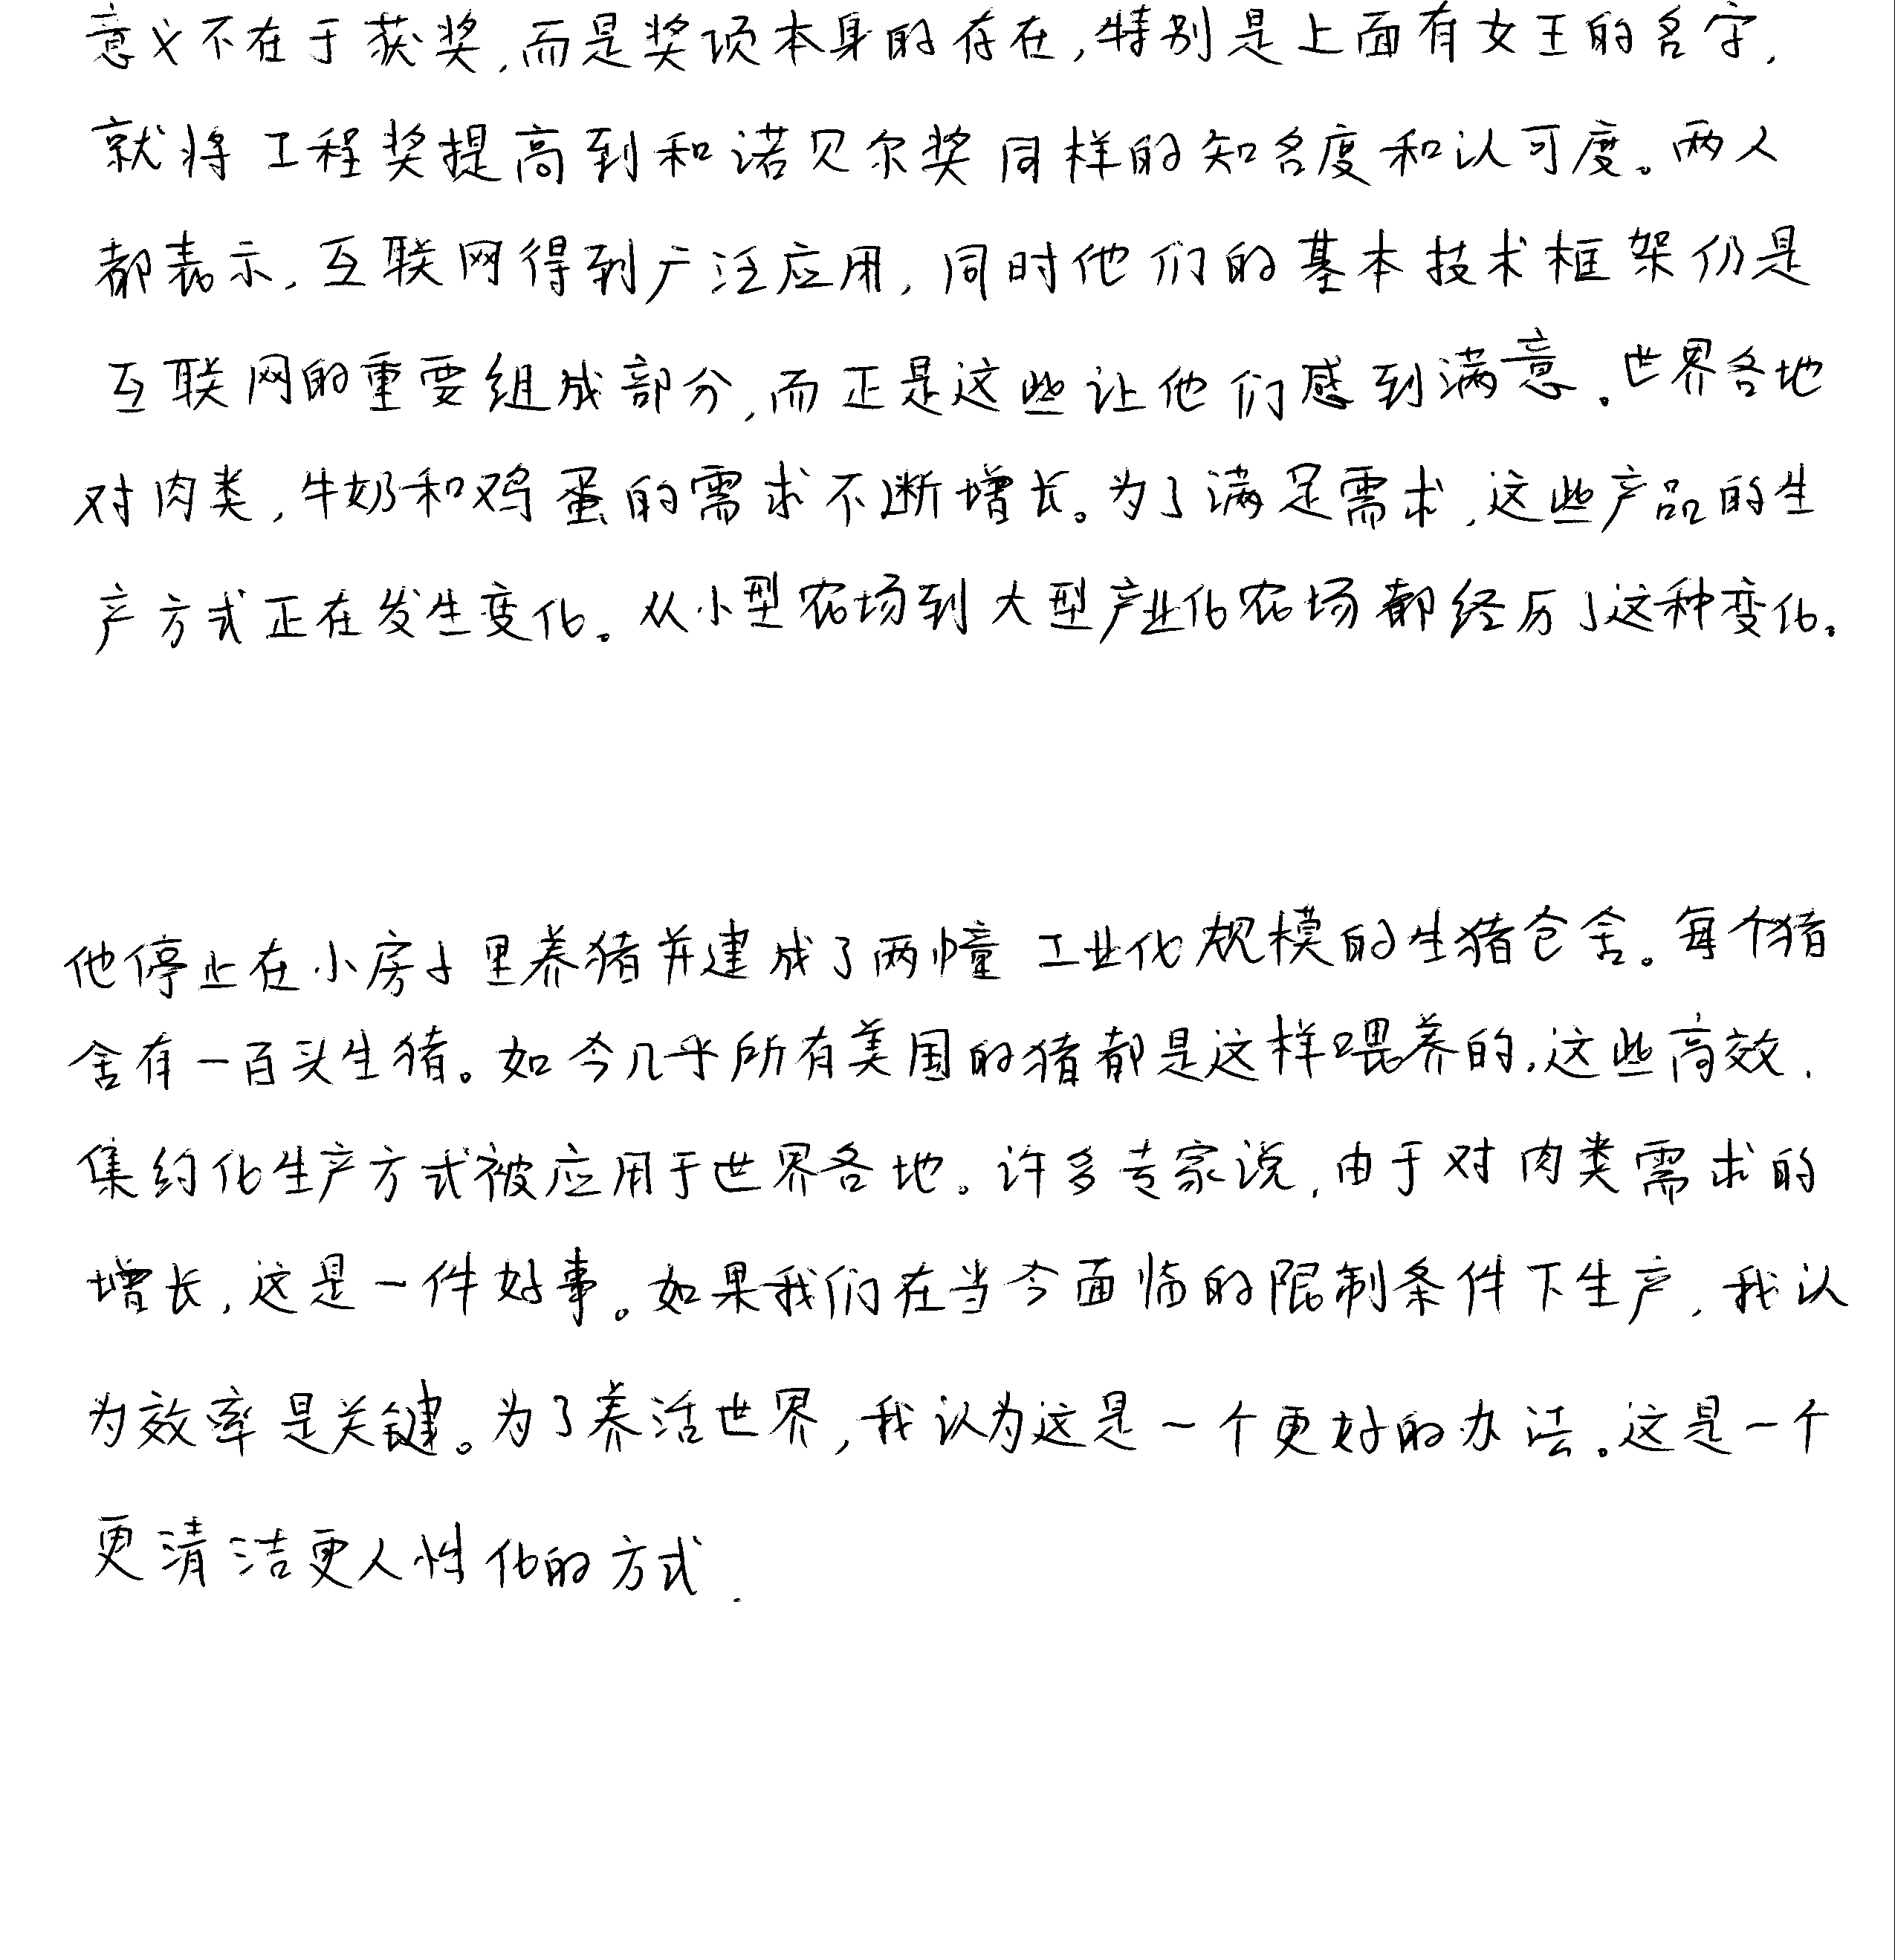 意义不在于获奖,而是奖项本身的存在,特别是上面有女王的名字,
就将工程奖提高到和诺贝尔奖同样的知名度和认可度。两人
都表示,互联网得到广泛应用,同时他们的基本技术框架仍是
互联网的重要组成部分,而正是这些让他们感到满意。世界各地
对肉类,牛奶和鸡蛋的需求不断增长。为了满足需求,这些产品的生
产方式正在发生变化。从小型农场到大型产业化农场都经历了这种变化。
他停止在小房子里养猪并建成了两幢工业化规模的生猪仓舍。每个猪
舍有一百头生猪。如今几乎所有美国的猪都是这样喂养的,这些高效.
集约化生产方式被应用于世界各地。许多专家说,由于对肉类需求的
增长,这是一件好事。如果我们在当今面临的限制条件下生产,我认
为效率是关键。为了养活世界,我认为这是一个更好的办法。这是一个
更清洁更人性化的方式.